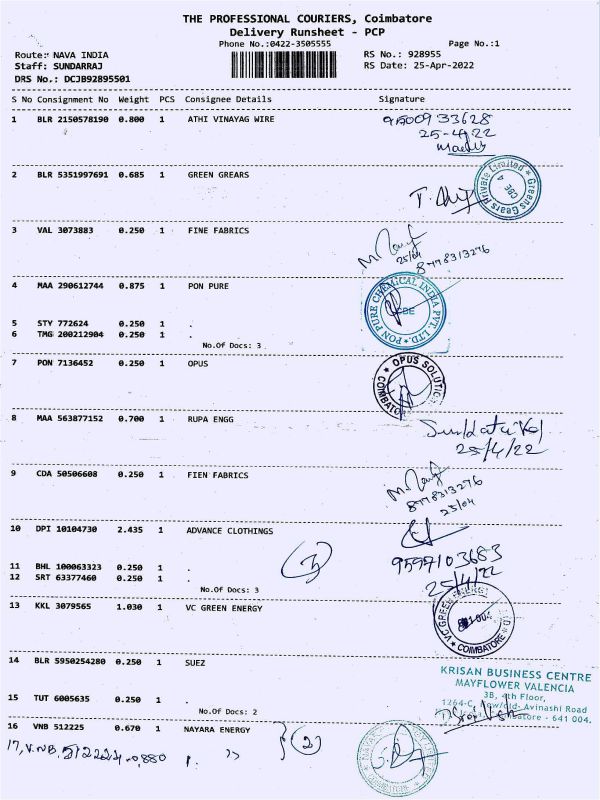 THE PROFESSIONAL COURIERS, Coimbatore
Delivery Runsheet - PCP
Phone No.:0422-3505555
Page No.:1
Route: NAVA INDIA
RS No.: 928955
Staff: SUNDARRAJ
RS Date: 25-Apr-2022
DRS No.: DCJB92895501
S No Consignment No Weight PCS Consignee Details Signature
1 BLR 2150578190 0.800 1 ATHI VINAYAG WIRE 9500933628
25-4/22
2 BLR 5351997691 0.685 1 GREEN GREARS
Greens Gears Private Limited * CBE 4 *
3 VAL 3073883 0.250 1 FINE FABRICS
25/04
8778313276
4 MAA 290612744 0.875 1 PON PURE
PON PURE CHEMICAL INDIA PVT. LTD. * CBE *
5 STY 772624 0.250 1 .
6 TMG 200212904 0.250 1 .
No.Of Docs: 3
7 PON 7136452 0.250 1 OPUS
* OPUS SOLUTION
8 MAA 563877152 0.700 1 RUPA ENGG
25/4/22
9 CDA 50506608 0.250 1 FIEN FABRICS
8778313276
25/04
10 DPI 10104730 2.435 1 ADVANCE CLOTHINGS
3
9597103683
25/4/22
11 BHL 100063323 0.250 1 .
12 SRT 63377460 0.250 1 .
No.Of Docs: 3
13 KKL 3079565 1.030 1 VC GREEN ENERGY
V.C. GREEN ENERGY * COIMBATORE *
14 BLR 5950254280 0.250 1 SUEZ
KRISAN BUSINESS CENTRE
MAYFLOWER VALENCIA
3B, 4th Floor,
1264-C, New/old- Avinashi Road
Coimbatore - 641 004.
15 TUT 6005635 0.250 1 .
No.Of Docs: 2
16 VNB 512225 0.670 1 NAYARA ENERGY
2
17, V.NB. 512224 - 0.880 1. "
NAYARA ENERGY LIMITED * COIMBATORE *